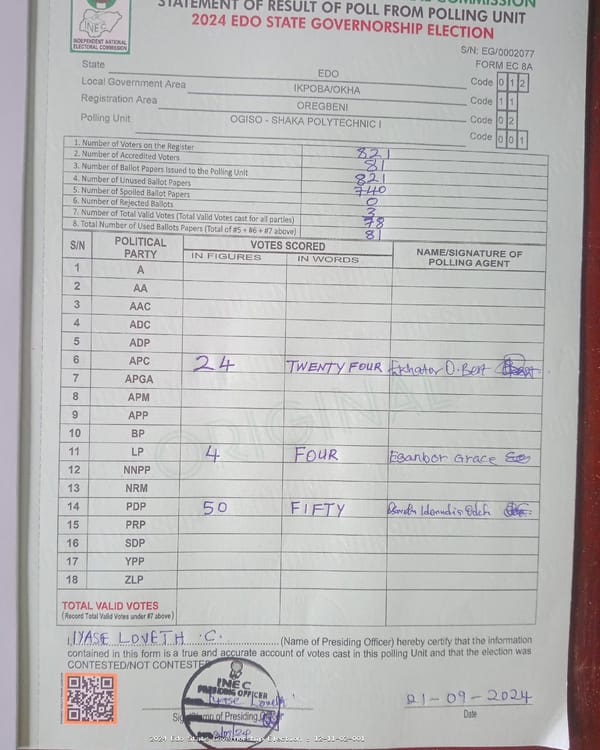 STATEMENT OF RESULT OF POLL FROM POLLING UNIT
2024 EDO STATE GOVERNORSHIP ELECTION
INEC
INDEPENDENT NATIONAL
ELECTORAL COMMISSION
S/N: EG/0002077
FORM EC 8A
State EDO Code 0 1 2
Local Government Area IKPOBA/OKHA Code 1 1
Registration Area OREGBENI Code 0 2
Polling Unit OGISO - SHAKA POLYTECHNIC I Code 0 0 1
1. Number of Voters on the Register 821
2. Number of Accredited Voters 81
3. Number of Ballot Papers Issued to the Polling Unit 821
4. Number of Unused Ballot Papers 740
5. Number of Spoiled Ballot Papers 0
6. Number of Rejected Ballots 3
7. Number of Total Valid Votes (Total Valid Votes cast for all parties) 78
8. Total Number of Used Ballots Papers (Total of #5 + #6 + #7 above) 81
S/N POLITICAL PARTY VOTES SCORED NAME/SIGNATURE OF POLLING AGENT
IN FIGURES IN WORDS
1 A
2 AA
3 AAC
4 ADC
5 ADP
6 APC 24 TWENTY FOUR Ekhator O. Bert
7 APGA
8 APM
9 APP
10 BP
11 LP 4 FOUR Esanbor Grace
12 NNPP
13 NRM
14 PDP 50 FIFTY
15 PRP
16 SDP
17 YPP
18 ZLP
ORIGINAL
TOTAL VALID VOTES
(Record Total Valid Votes under #7 above)
I, IYASE LOVETH .C. (Name of Presiding Officer) hereby certify that the information
contained in this form is a true and accurate account of votes cast in this polling Unit and that the election was
CONTESTED/NOT CONTESTED
INEC
PRESIDING OFFICER
Iyase Loveth
of Presiding
21-09-2024
Date
2024 Edo State Governorship Election : 12-11-02-001